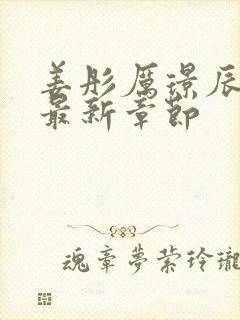 姜彤厲璟辰
最新章節
魂牽夢縈玲瓏